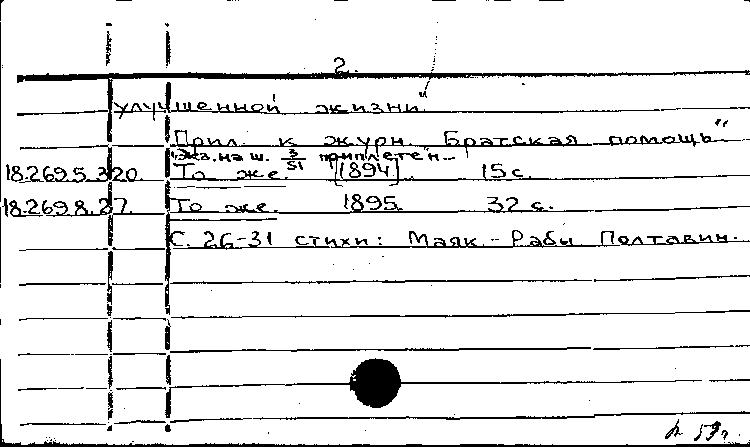 2.
улучшенной жизни"
Прил. к журн. Братская помощь"
Экз. на ш. 3/51 приплетен.
18.269.5.320. То же [1894]. 15 с.
18.269.8.27. То же. 1895. 32 с.
С. 26-31 стихи: Маяк. - Рабы Полтавин.